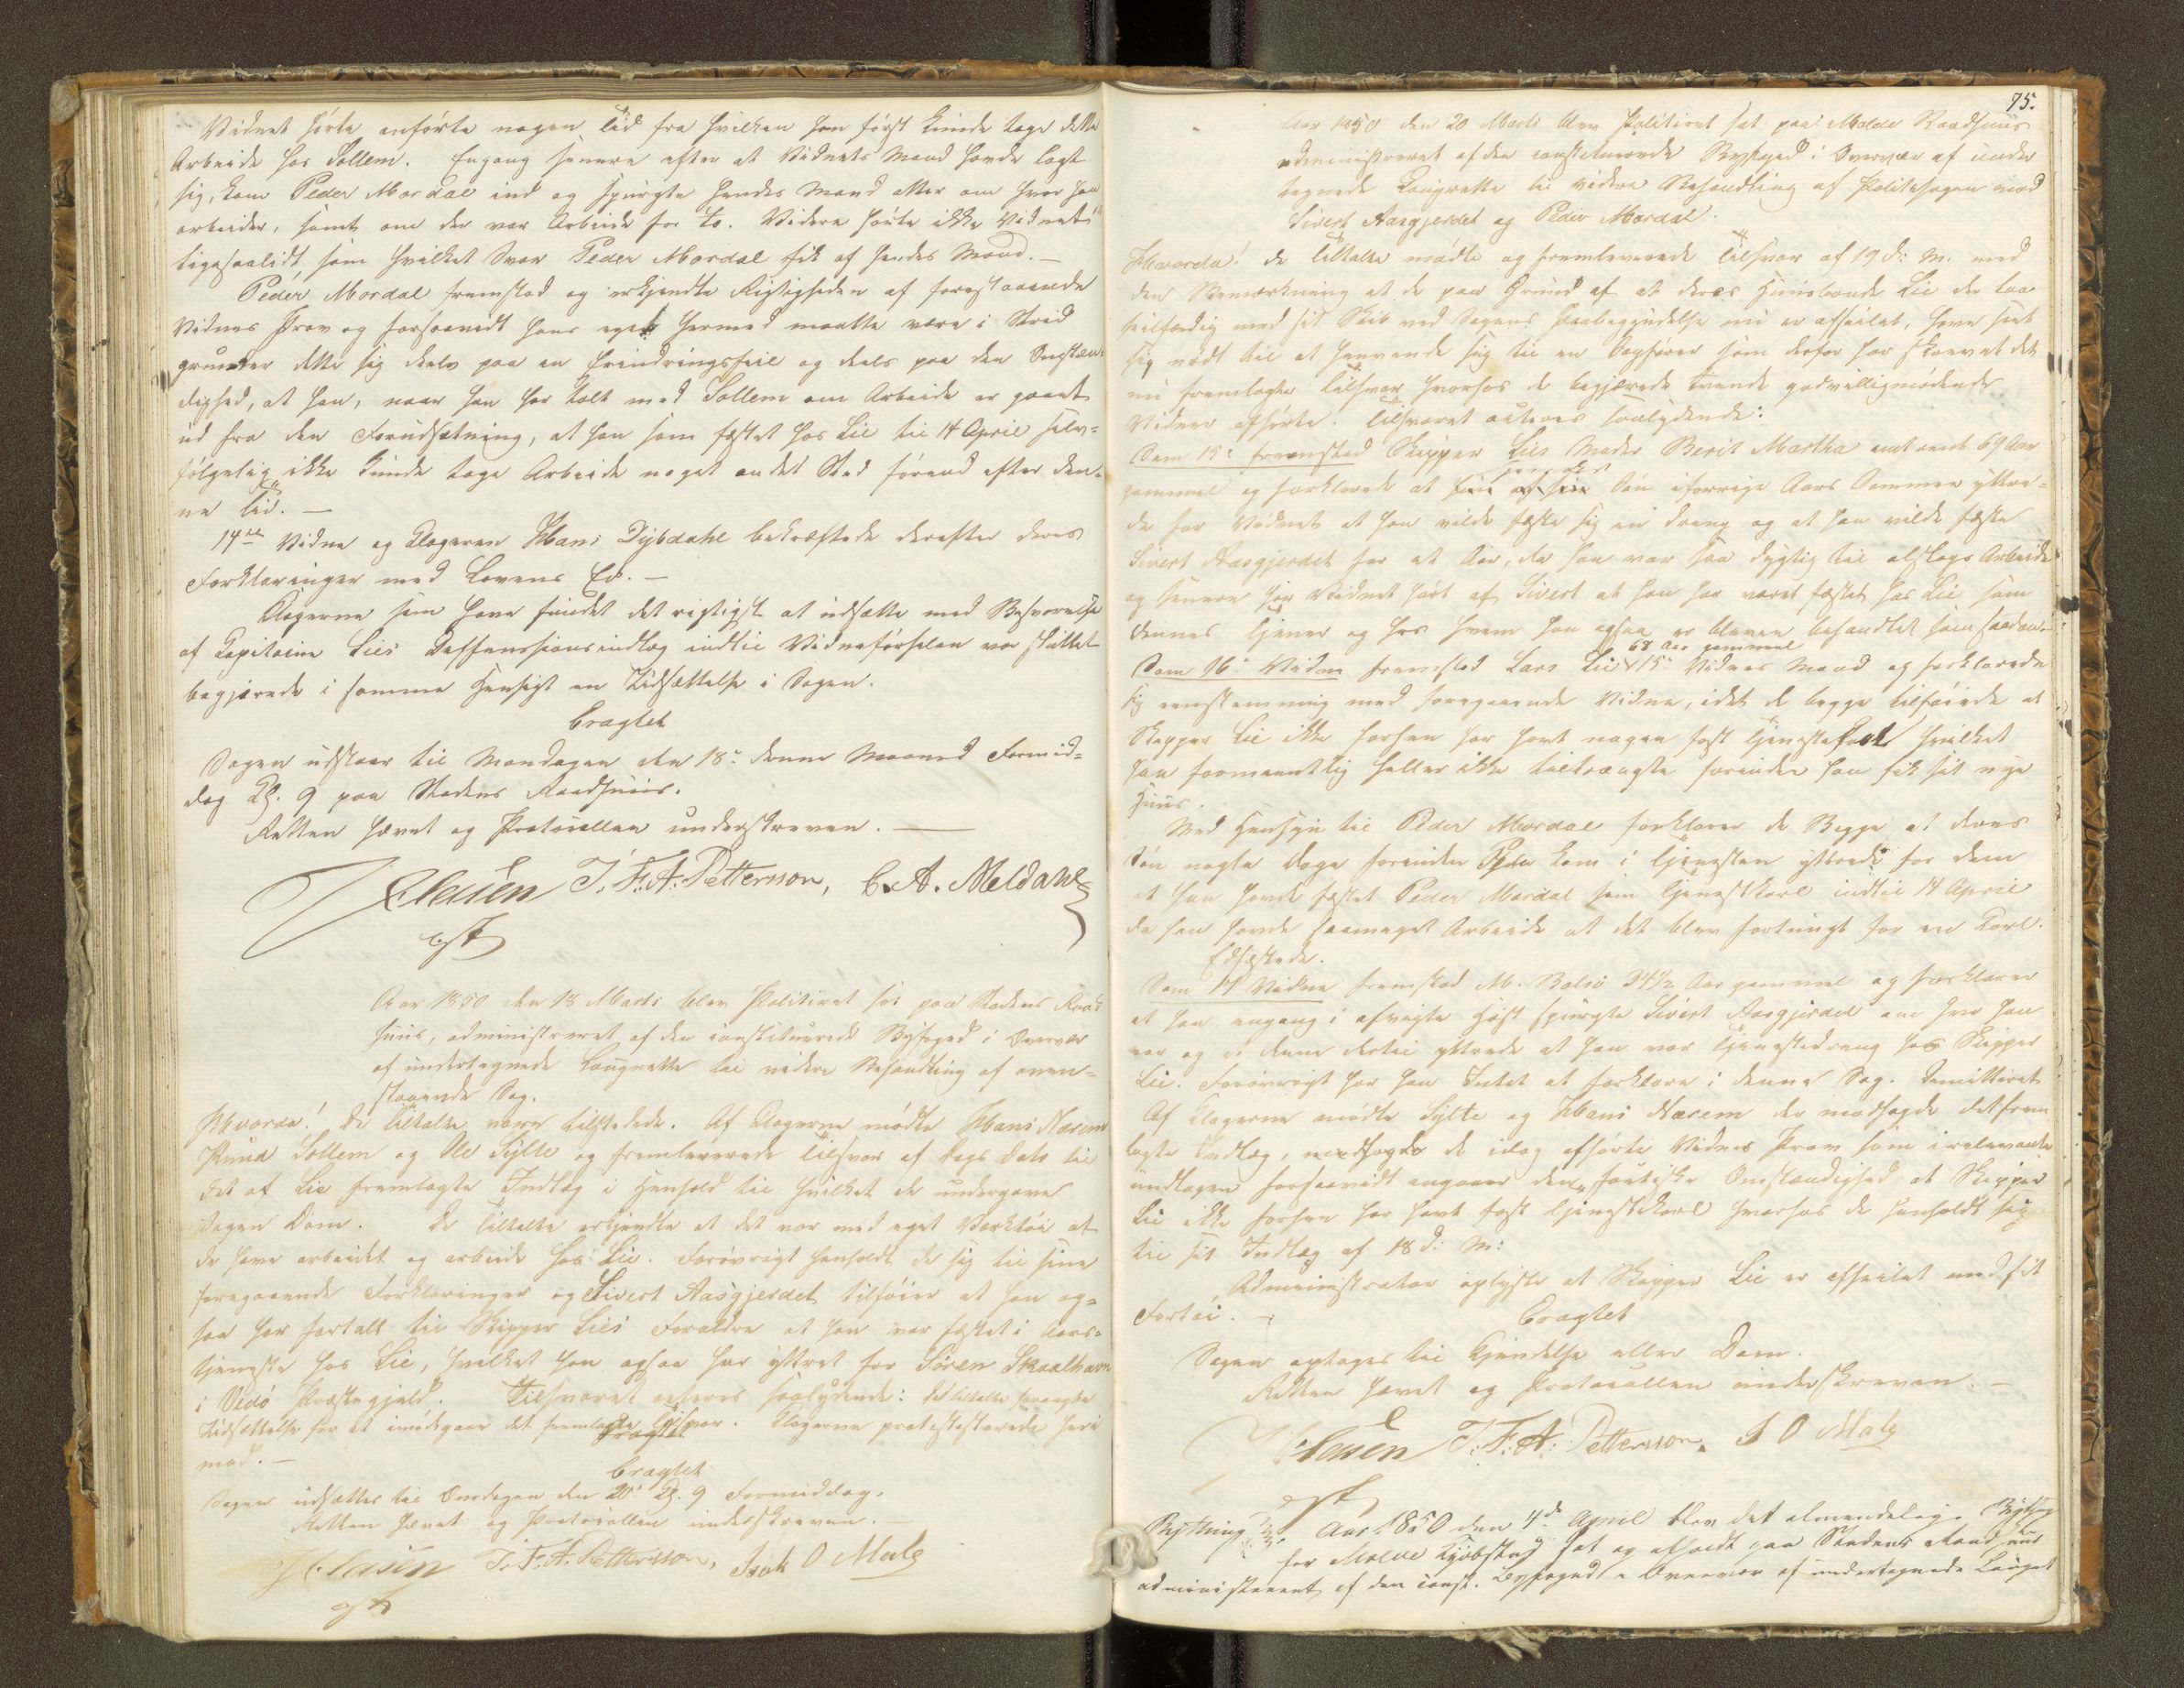 Vidnet hørte anførte nogen Tid fra hvilken han først kunde tage dette
Arbeide hos Sollem. Engang senere efter at Vidnets Mand havde lagt
sig, kom Peder Mordal ind og spurgte hendes Mand atter om hvor han
arbeider, samt om der var Arbeide for to. Videre hørte ikke Vidnet
ligesaalidt, som hvilket Svar Peder Mordal fik af hendes Mand. —
Peder Mordal fremstod og erkjendte Rigtigheden af forestaaende
Vidnes Prov og forsaavidt hans eget hermed maatte være i Strid
grunder dette sig deels paa en Erindringsfeil og deels paa den Omstæn-
dighed, at han, naar han har talt med Sollem om Arbeide er gaaet
ud fra den Forudsætning, at han som fæstet hos Lie til 14 April selv-
følgelig ikke kunde tage Arbeide noget andet Sted førend efter den-
ne Tid. —
14de Vidne og Klageren Hans Dybdahl bekræftede derefter deres
Forklaringer med Lovens Ed. —
Klagerne som have fundet det rigtigst at udsætte med Besvarelse
af Kapitaine Lies Deffensionsindlæg indtil Vidneførselen var sluttet
begjærede i samme Hensigt en Udsættelse i Sagen.
Eragtet
Sagen udstaar til Mandagen den 18de denne Maaned Formid-
dag Kl. 9 paa Stadens Raadhuus.
Retten hævet og Protocollen underskreven. —
Clasen J. F. A. Petterson, C. A. Meldahl
cst
Aar 1850 den 18 Marts blev Politiret sat paa Stadens Raad
huus, administreret af den constituerede Byfoged i Overvær
af undertegnede Laugrette til videre Behandling af oven-
staaende Sag.
Hvorda! De Tiltalte vare tilstede. Af Klagerne mødte Hans Næsem
Knud Sollem og Ole Sylte og fremleverede Tilsvar af Dags Dato til
det af Lie fremlagte Indlæg i Henhold til hvilket de undergave
Sagen Dom. De Tiltalte erkjendte at det var med eget Værktøi at
de have arbeidet og arbeide hos Lie. Forøvrigt henholdt de sig til sine
foregaaende Forklaringer og Sivert Aasgjerdet tilføier at han og-
saa har fortalt til Skipper Lies Forældre at han var fæstet i Aars-
tjeneste hos Lie, hvilket han ogsaa har yttret for Søren Skaalhavn
i Vedø Præstegjeld. Tilsvaret acteres saalydende: De tiltalte forlangte
Udsættelse for at imødegaae det fremlagte Tilsvar. Klagerne protesterede heri
mod. —
Eragtet
Sagen udsættes til Onsdagen den 20de Kl. 9 Formiddag.
Retten hævet og Protocollen underskreven. —
Clasen J. F. A. Petterson, Isak O Male
cst
75.
Aar 1850 den 20 Marts blev Politiret sat paa Molde Raadhuus
administreret af den constituerede Byfoged i Overvær af under
tegnede Laugrette til videre Behandling af Politisagen mod
Sivert Aasgjerdet og Peder Mordal.
Hvorda! De Tiltalte mødte og fremleverede Tilsvar af 19 d: M. med
den Bemærkning at de paa Grund af at deres Huusbonde Lie der laa
seilfærdig med sit Skib ved Sagens Paabegyndelse nu er afseilet, have seet
sig nødt til at henvende sig til en Sagfører som derfor har skrevet det
nu fremlagte Tilsvar, hvorhos de begjærede tvende godvilligmødende
Vidner afhørte. Tilsvaret acteres saalydende:
Som 15de fremstod Skipper Lies Moder Berit Martha omtrent 69 Aar
gammel og forklarede at hendes Søn i forrige Aars Sommer yttre-
de for Vidnet at han vilde fæste sig en Dreng og at han vilde fæste
Sivert Aasgjerdet for et Aar, da han var saa dygtig til alslags Arbeide
og senere har Vidnet hørt af Sivert at han har været fæstet hos Lie som
dennes Tjener og hos hvem han ogsaa er bleven behandlet som saadan.
68 Aar gammel
Som 16de Vidne fremstod Lars Lie 15de Vidnes Mand og forklarede
sig eenstemmig med foregaaende Vidne, idet de begge tilføiede at
Skipper Lie ikke forhen har havt nogen fast Tjenestekarl hvilket
han formeentlig heller ikke tiltrængte forinden han fik sit nye
Huus.
Med Hensyn til Peder Mordal forklarer de Begge at deres
Søn nogle Dage forinden Peder kom i Tjenesten yttrede for dem
at han havde fæstet Peder Mordal som Tjenestekarl indtil 14 April
da han havde saameget Arbeide at det blev fortungt for en Karl.
Edfæstede.
Som 17 Vidne fremstod M. Bolsø 34½ Aar gammel og forklarer
at han engang i afvigte Høst spurgte Sivert Aasgjerdet om hvor han
var og at denne dertil yttrede at han var Tjenestedreng hos Skipper
Lie. Forøvrigt har han Intet at forklare i denne Sag. Demitteret
Af Klagerne mødte Sylte og Hans Næsem der modsagde det frem
lagte Indlæg, modsagde de idag afhørte Vidners Prov som irelevante
undtagen forsaavidt angaaer den factiske Omstændighed at Skipper
Lie ikke forhen har havt fast Tjenestekarl hvorhos de henholdt sig
til sit Indlæg af 18 d: M:
Administrator oplyste at Skipper Lie er afseilet med sit
Fartøi. —
Eragtet
Sagen optages til Kjendelse eller Dom.
Retten hævet og Protocollen underskreven. —
Clasen J. F. A. Petterson. I O Male
cst
Bything Aar 1850 den 4de April blev det almindelige Bything
for Molde Kjøbstad sat og afholdt paa Stadens Raadhuus
administreret af den const. Byfoged i Overvær af undertegnede Lauget